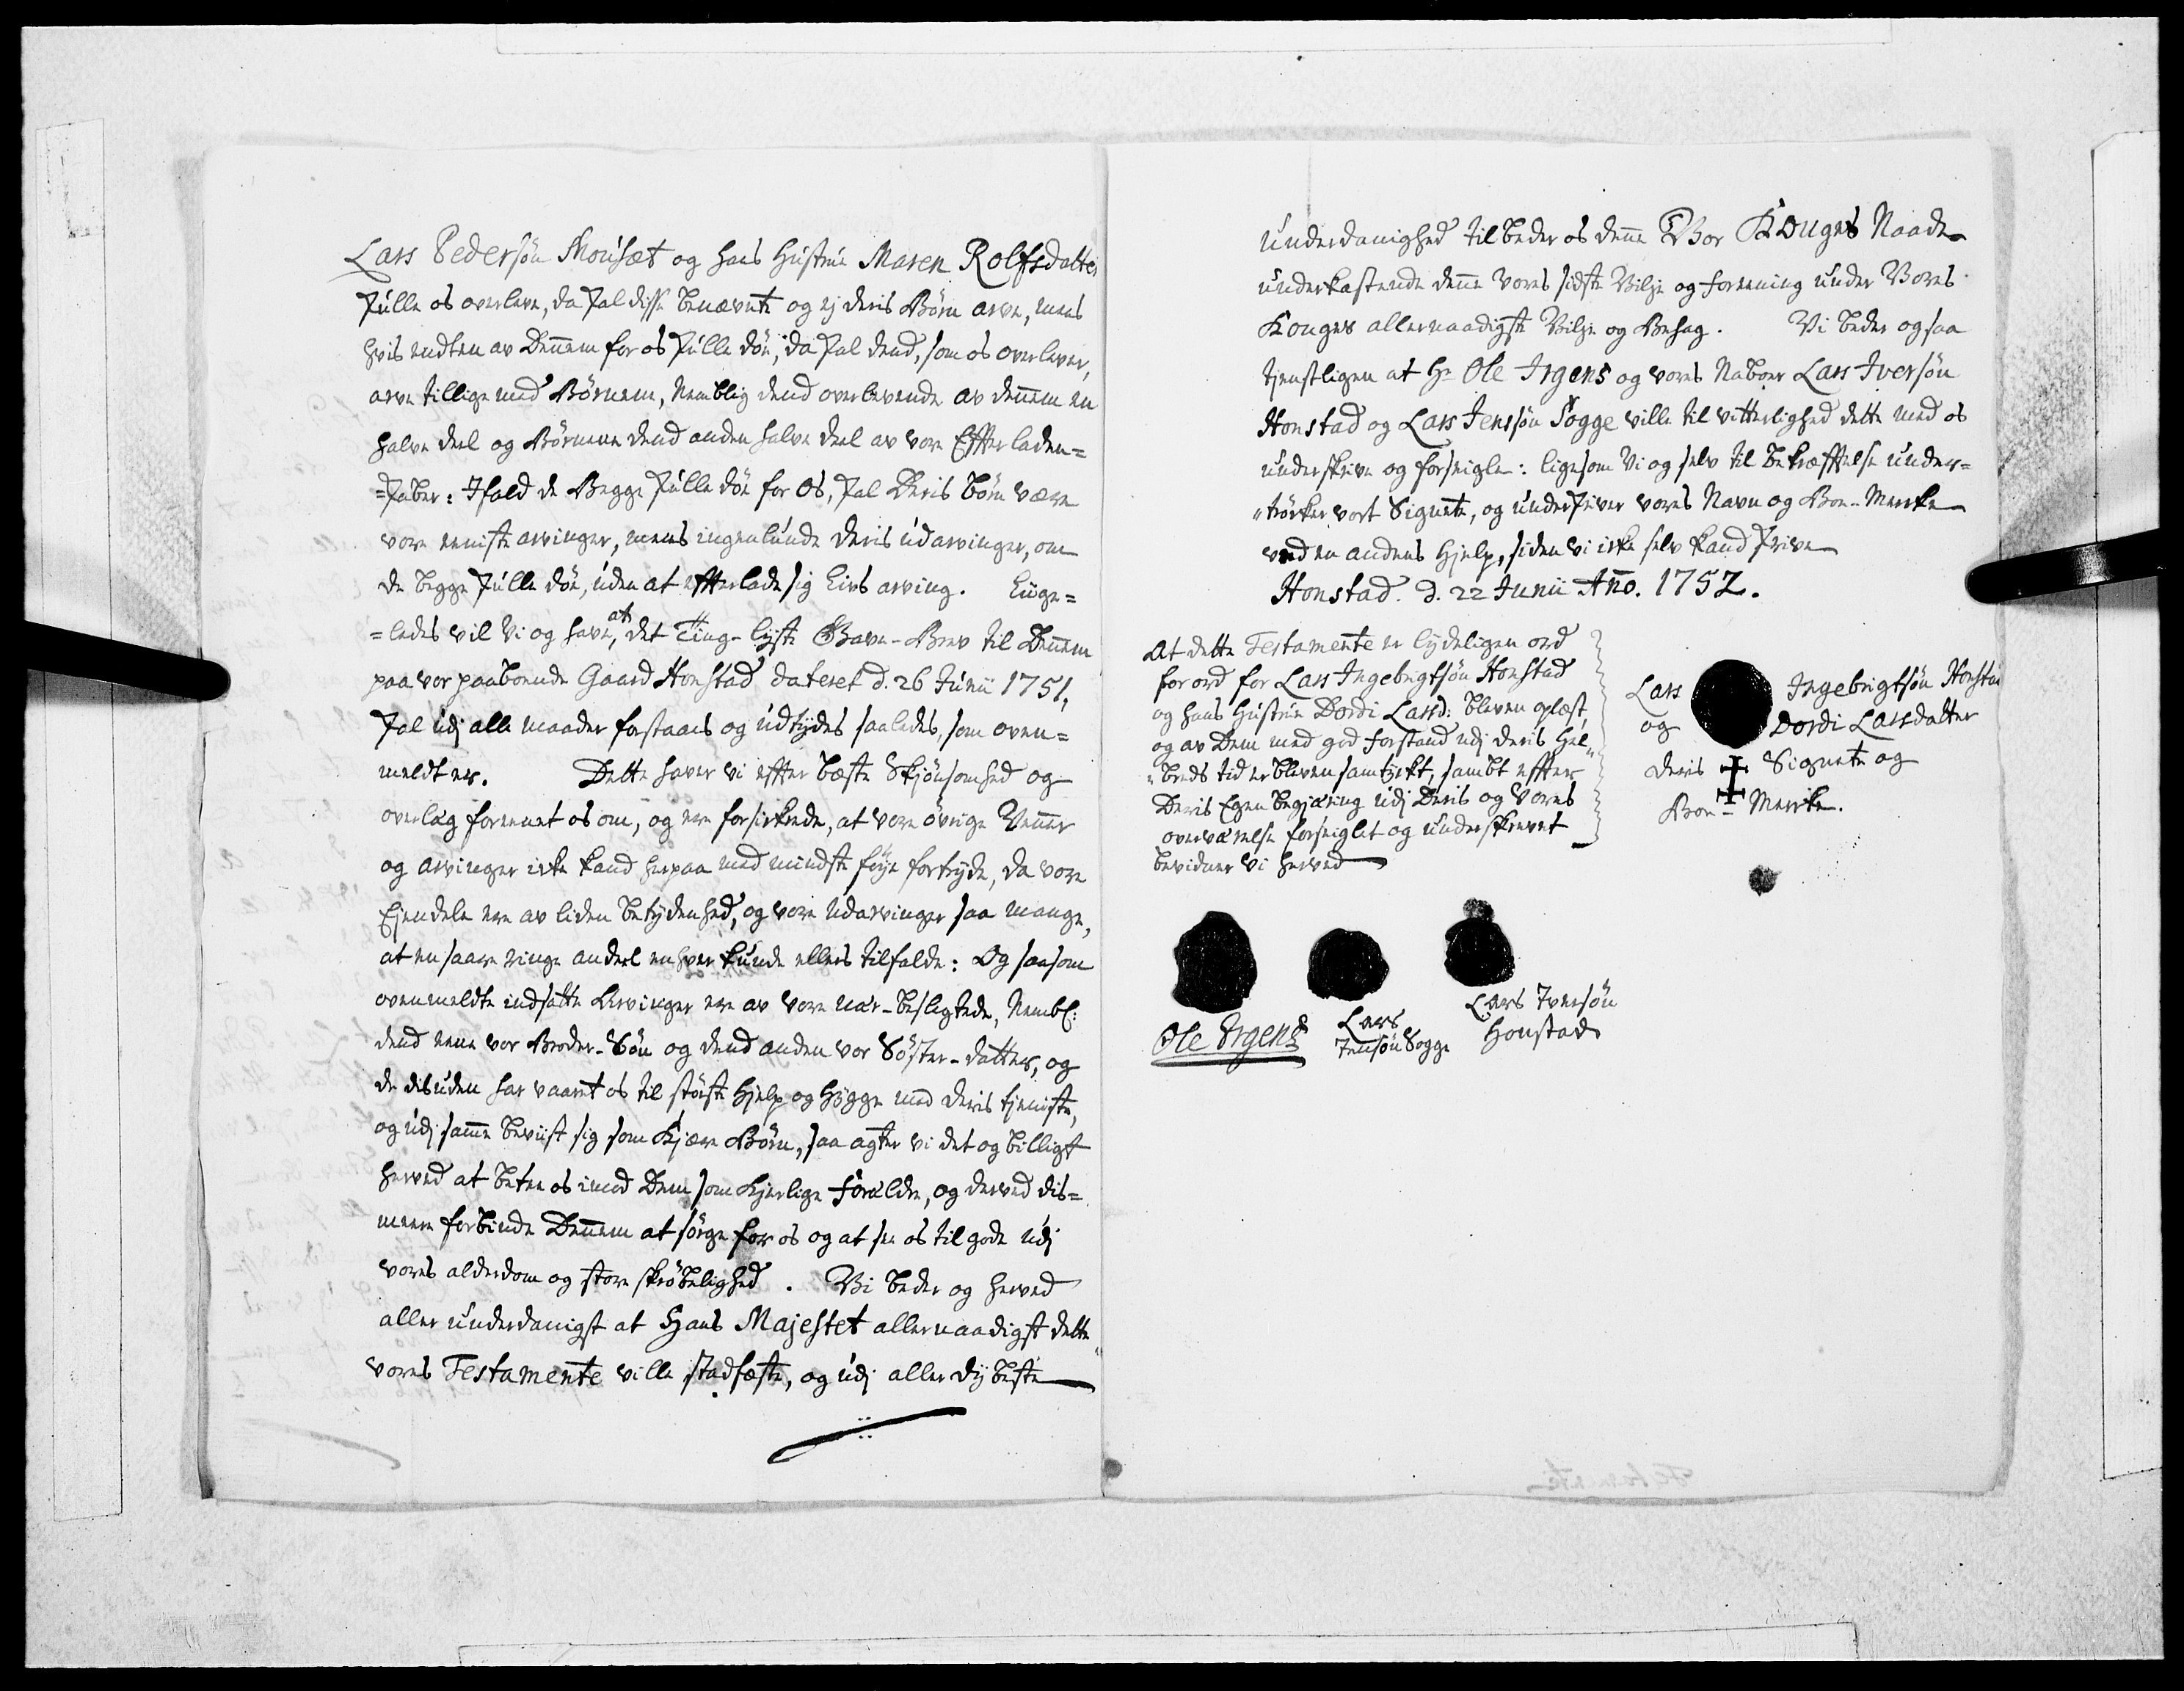 Lars Pedersön Mousæt og hans Hustrue Maren Rolfsdatter
skulle os overleve, da skal disse benævnte og ej deris Börn arve, mens
hvis endten av Dennem for os skulle döe, da skal dend, som os overlever,
arve tillige med Börnene, Nemblig dend overlevende av dennem en
halve deel og Börnene dend anden halve deel av vore Effterladen=
=skaber: Ifald de Begge skulle döe for Os, skal Deris börn være
vore eeniste arvinger, mens ingenlunde deris udarvinger, om
de begge skulle döe, uden at effterlade sig Livs arving. Liige=
=ledes vil Vi og have, at det Ting-lyste Gave-Brev til Dennem
paa vor paaboende Gaard Honstad dateret d. 26 Junii 1751,
skal udj alle maader forstaaes og udtydes saaledes, som oven=
meldt er. Dette haver vi effter bæste Skjönsomhed og
overlæg foreenet os om, og ere forsickrede, at vore övrige Venner
og arvinger icke kand herpaa med mindste föye fortryde, da vore
Ejendele ere av liden betydenhed, og vore udarvinger saa mange,
at en saare ringe andeel enhver kunde ellers tilfalde: Og saasom
ovenmeldte indsatte Arvinger ere av vore nær-beslegtede, Nembl:
dend eene vor Broder-Sön og dend anden vor Söster-datter, og
de disuden har vaaret os til störste Hjelp og Hygge med deris tjeniste,
og udj samme beviist sig som Kjære Börn, saa agter vi det og billigt
herved at betee os imod Dem som Kjerlige Forældre, og derved dis=
meere forbinde Dennem at sörge for os og at see os til gode udj
vores alderdom og store skröbelighed. Vi beder og herved
aller underdanigst at Hans Majestet allernaadigst dette
vores Testamente ville stadfæste, og udj aller dybeste
underdanighed tilbeder os denne Vor Konges Naade
underkastende denne vores sidste Vilje og foreening under Vores
Konges allernaadigste Vilje og Behag. Vi beder og saa
tjenstligen at Hr Ole Irgens og vores Naboer Lars Iversön
Honstad og Lars Jensön Sogge ville til vitterlighed dette med os
underskrive og forseigle: ligesom Vi og selv til bekræfftelse under=
„trücker vort Signete, og underskriver vores Navn og Boe-Mercke
ved en andens Hjelp, siden vi icke selv kand skrive
Honstad. d. 22 Junii Ano. 1752.
At dette Testamente er lydeligen ord
for ord for Lars Ingebrigtsön Honstad
og hans Hustrue Dordi Larsd: bleven oplæst,
og av Dem med god forstand udj deris Hel„
„breds tid er bleven samtyckt, sambt effter
Deris Egen begjæring udj Deris og Vores
overværelse forseiglet og underskrevet
bevidner vi herved
Lars Ingebrigtsön Honstad
og Dordi Larsdatter
deris Signete og
Boe- Mercke.
Ole Irgens
Lars
Jensön Sogge
Lars Iversön
Honstad